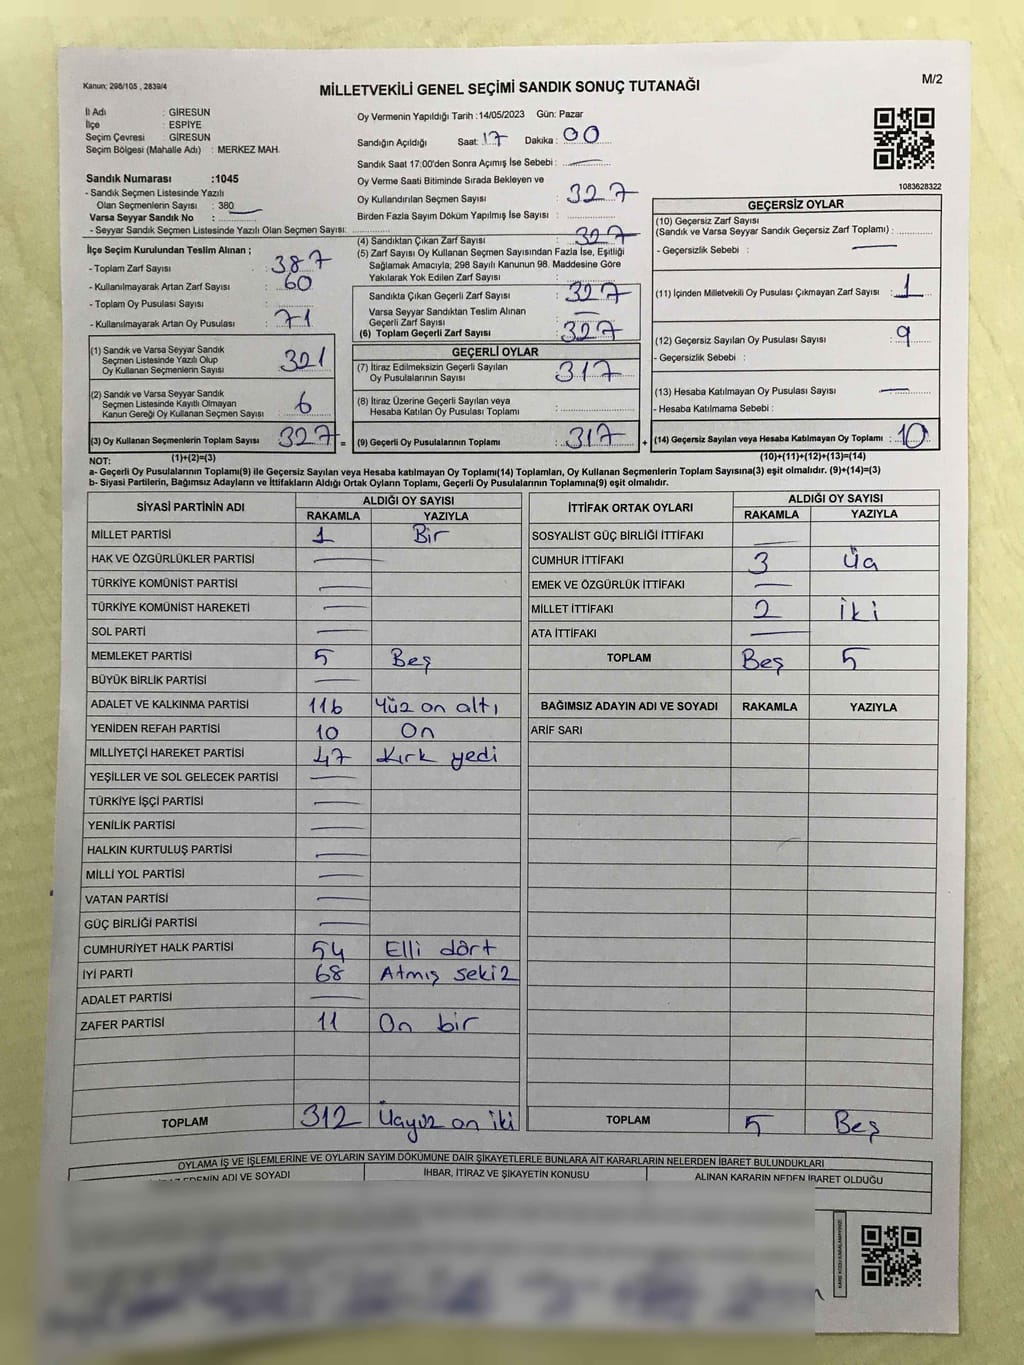 Kanun; 298/105 , 2839/4
MİLLETVEKİLİ GENEL SEÇİMİ SANDIK SONUÇ TUTANAĞI
M/2
İl Adı : GİRESUN
İlçe : ESPİYE
Seçim Çevresi : GİRESUN
Seçim Bölgesi (Mahalle Adı) : MERKEZ MAH.
Oy Vermenin Yapıldığı Tarih :14/05/2023 Gün: Pazar
Sandığın Açıldığı Saat: 17 Dakika : 00
Sandık Saat 17:00'den Sonra Açımış İse Sebebi : —
Sandık Numarası :1045
- Sandık Seçmen Listesinde Yazılı
Olan Seçmenlerin Sayısı : 380
Varsa Seyyar Sandık No :
- Seyyar Sandık Seçmen Listesinde Yazılı Olan Seçmen Sayısı:
Oy Verme Saati Bitiminde Sırada Bekleyen ve
Oy Kullandırılan Seçmen Sayısı : 327
Birden Fazla Sayım Döküm Yapılmış İse Sayısı :
1083628322
İlçe Seçim Kurulundan Teslim Alınan ;
- Toplam Zarf Sayısı : 387
- Kullanılmayarak Artan Zarf Sayısı : 60
- Toplam Oy Pusulası Sayısı :
- Kullanılmayarak Artan Oy Pusulası : 71
(1) Sandık ve Varsa Seyyar Sandık
Seçmen Listesinde Yazılı Olup
Oy Kullanan Seçmenlerin Sayısı : 321
(2) Sandık ve Varsa Seyyar Sandık
Seçmen Listesinde Kayıtlı Olmayan
Kanun Gereği Oy Kullanan Seçmen Sayısı : 6
(3) Oy Kullanan Seçmenlerin Toplam Sayısı : 327 =
(1)+(2)=(3)
(4) Sandıktan Çıkan Zarf Sayısı : 327
(5) Zarf Sayısı Oy Kullanan Seçmen Sayısından Fazla İse, Eşitliği
Sağlamak Amacıyla, 298 Sayılı Kanunun 98. Maddesine Göre
Yakılarak Yok Edilen Zarf Sayısı :
Sandıkta Çıkan Geçerli Zarf Sayısı : 327
Varsa Seyyar Sandıktan Teslim Alınan
Geçerli Zarf Sayısı : —
(6) Toplam Geçerli Zarf Sayısı : 327
GEÇERLİ OYLAR
(7) İtiraz Edilmeksizin Geçerli Sayılan
Oy Pusulalarının Sayısı : 317
(8) İtiraz Üzerine Geçerli Sayılan veya
Hesaba Katılan Oy Pusulası Toplamı :
(9) Geçerli Oy Pusulalarının Toplamı : 317 +
GEÇERSİZ OYLAR
(10) Geçersiz Zarf Sayısı
(Sandık ve Varsa Seyyar Sandık Geçersiz Zarf Toplamı) :
- Geçersizlik Sebebi : —
(11) İçinden Milletvekili Oy Pusulası Çıkmayan Zarf Sayısı : 1
(12) Geçersiz Sayılan Oy Pusulası Sayısı : 9
- Geçersizlik Sebebi :
(13) Hesaba Katılmayan Oy Pusulası Sayısı : —
- Hesaba Katılmama Sebebi :
(14) Geçersiz Sayılan veya Hesaba Katılmayan Oy Toplamı : 10
(10)+(11)+(12)+(13)=(14)
NOT:
a- Geçerli Oy Pusulalarının Toplamı(9) ile Geçersiz Sayılan veya Hesaba katılmayan Oy Toplamı(14) Toplamları, Oy Kullanan Seçmenlerin Toplam Sayısına(3) eşit olmalıdır. (9)+(14)=(3)
b- Siyasi Partilerin, Bağımsız Adayların ve İttifakların Aldığı Ortak Oyların Toplamı, Geçerli Oy Pusulalarının Toplamına(9) eşit olmalıdır.
SİYASİ PARTİNİN ADI ALDIĞI OY SAYISI
RAKAMLA YAZIYLA
MİLLET PARTİSİ 1 Bir
HAK VE ÖZGÜRLÜKLER PARTİSİ —
TÜRKİYE KOMÜNİST PARTİSİ —
TÜRKİYE KOMÜNİST HAREKETİ —
SOL PARTİ —
MEMLEKET PARTİSİ 5 Beş
BÜYÜK BİRLİK PARTİSİ —
ADALET VE KALKINMA PARTİSİ 116 Yüz on altı
YENİDEN REFAH PARTİSİ 10 On
MİLLİYETÇİ HAREKET PARTİSİ 47 Kırk yedi
YEŞİLLER VE SOL GELECEK PARTİSİ —
TÜRKİYE İŞÇİ PARTİSİ —
YENİLİK PARTİSİ —
HALKIN KURTULUŞ PARTİSİ —
MİLLİ YOL PARTİSİ —
VATAN PARTİSİ —
GÜÇ BİRLİĞİ PARTİSİ —
CUMHURİYET HALK PARTİSİ 54 Elli dört
İYİ PARTİ 68 Atmış sekiz
ADALET PARTİSİ —
ZAFER PARTİSİ 11 On bir
TOPLAM 312 Üçyüz on iki
İTTİFAK ORTAK OYLARI ALDIĞI OY SAYISI
RAKAMLA YAZIYLA
SOSYALİST GÜÇ BİRLİĞİ İTTİFAKI —
CUMHUR İTTİFAKI 3 Üç
EMEK VE ÖZGÜRLÜK İTTİFAKI —
MİLLET İTTİFAKI 2 İki
ATA İTTİFAKI —
TOPLAM Beş 5
BAĞIMSIZ ADAYIN ADI VE SOYADI RAKAMLA YAZIYLA
ARİF SARI
TOPLAM 5 Beş
OYLAMA İŞ VE İŞLEMLERİNE VE OYLARIN SAYIM DÖKÜMÜNE DAİR ŞİKAYETLERLE BUNLARA AİT KARARLARIN NELERDEN İBARET BULUNDUKLARI
EDENİN ADI VE SOYADI İHBAR, İTİRAZ VE ŞİKAYETİN KONUSU ALINAN KARARIN NEDEN İBARET OLDUĞU